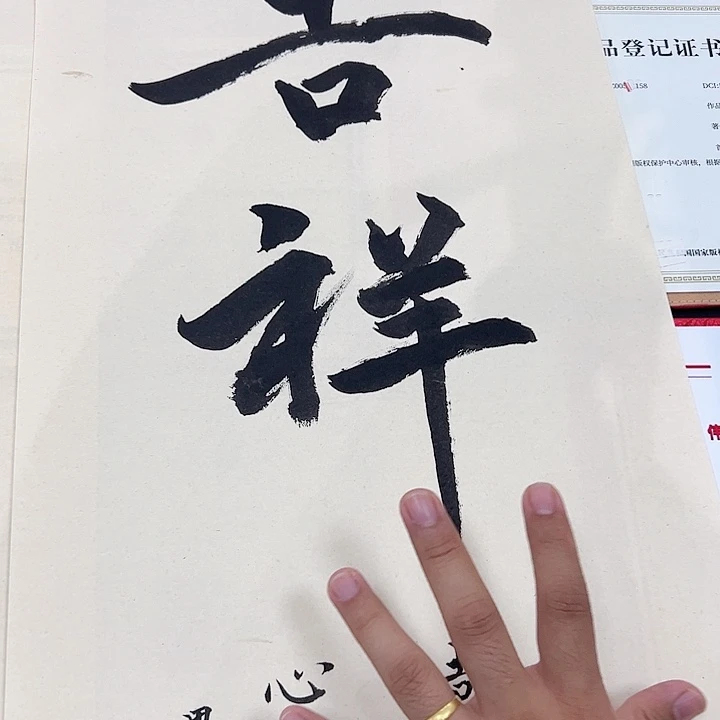 吉
祥
心
品登记证书
158
DCI:
作品
著
国版权保护中心审核，根据
国国家版权
伟